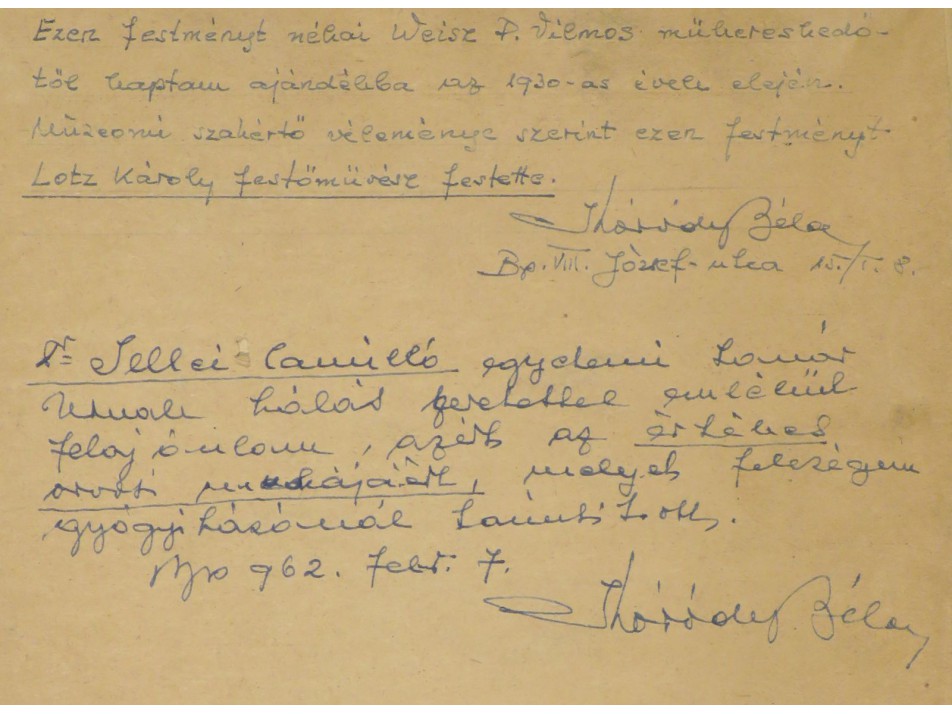 Ezen festményt néhai Weisz P. Vilmos műkereskedő-
től kaptam ajándékba az 1930-as évek elején.
Múzeumi szakértő véleménye szerint ezen festményt
Lotz Károly festőművész festette.
Béla
Bp. VIII. József-utca 15./I. 8.
Dr Sellei Camilló egyetemi tanár
Urnak hálás szeretettel emlékül
felajánlom, azért az értékes
orvosi munkájáért, melyet feleségem
gyógyításánál tanusitott.
Bp 962. febr. 7.
Béla